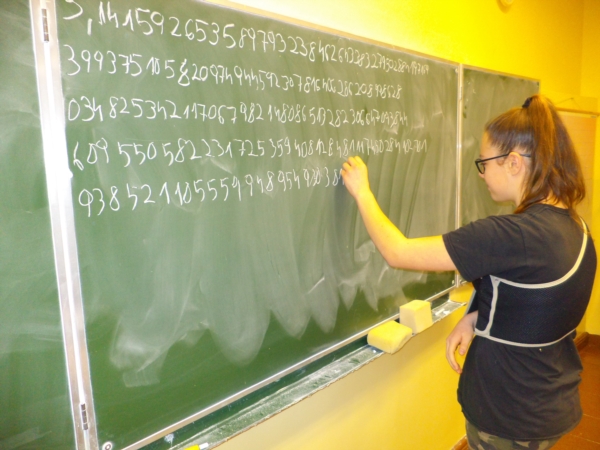 3,141592653589793238462643383279502884197169
399375105820974944592307816406286208998628
034825342117067982148086513282306647093844
609550582231725359408128481117450284102701
93852110555994895493038